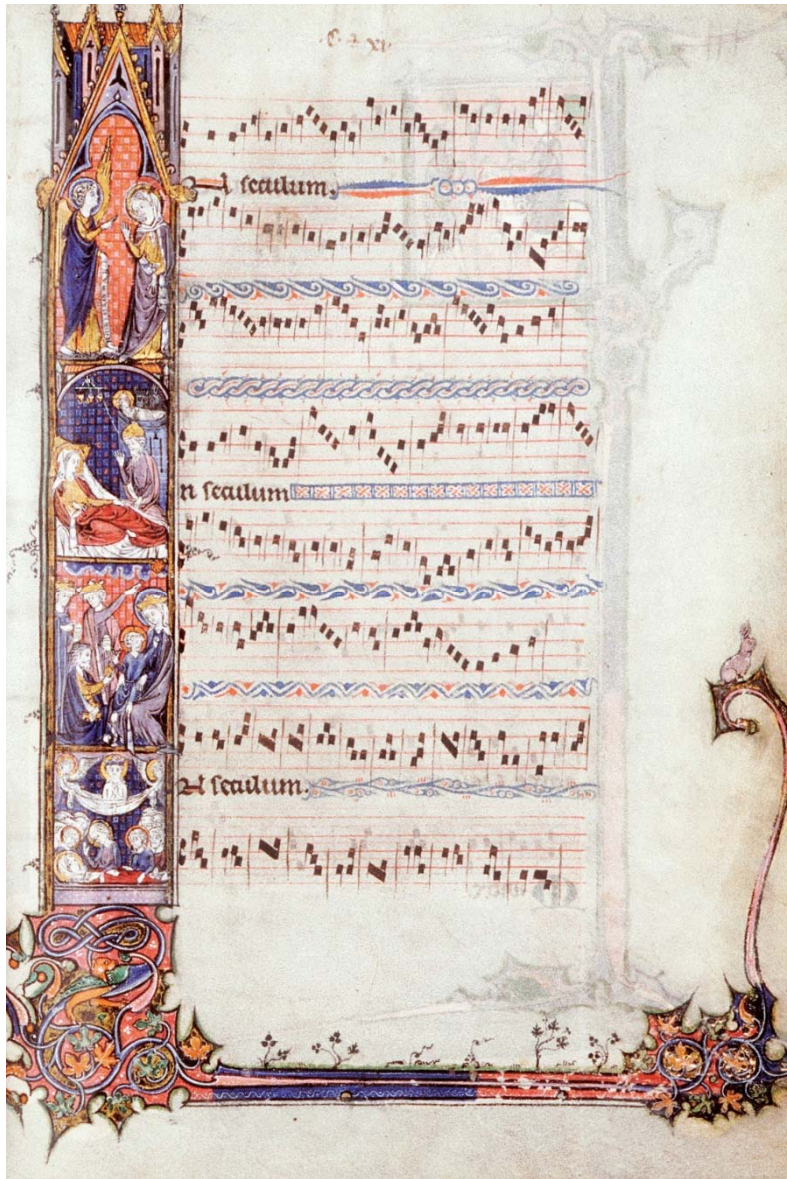 ·C· ⁊ xi·
N seculum.
n seculum
N seculum.